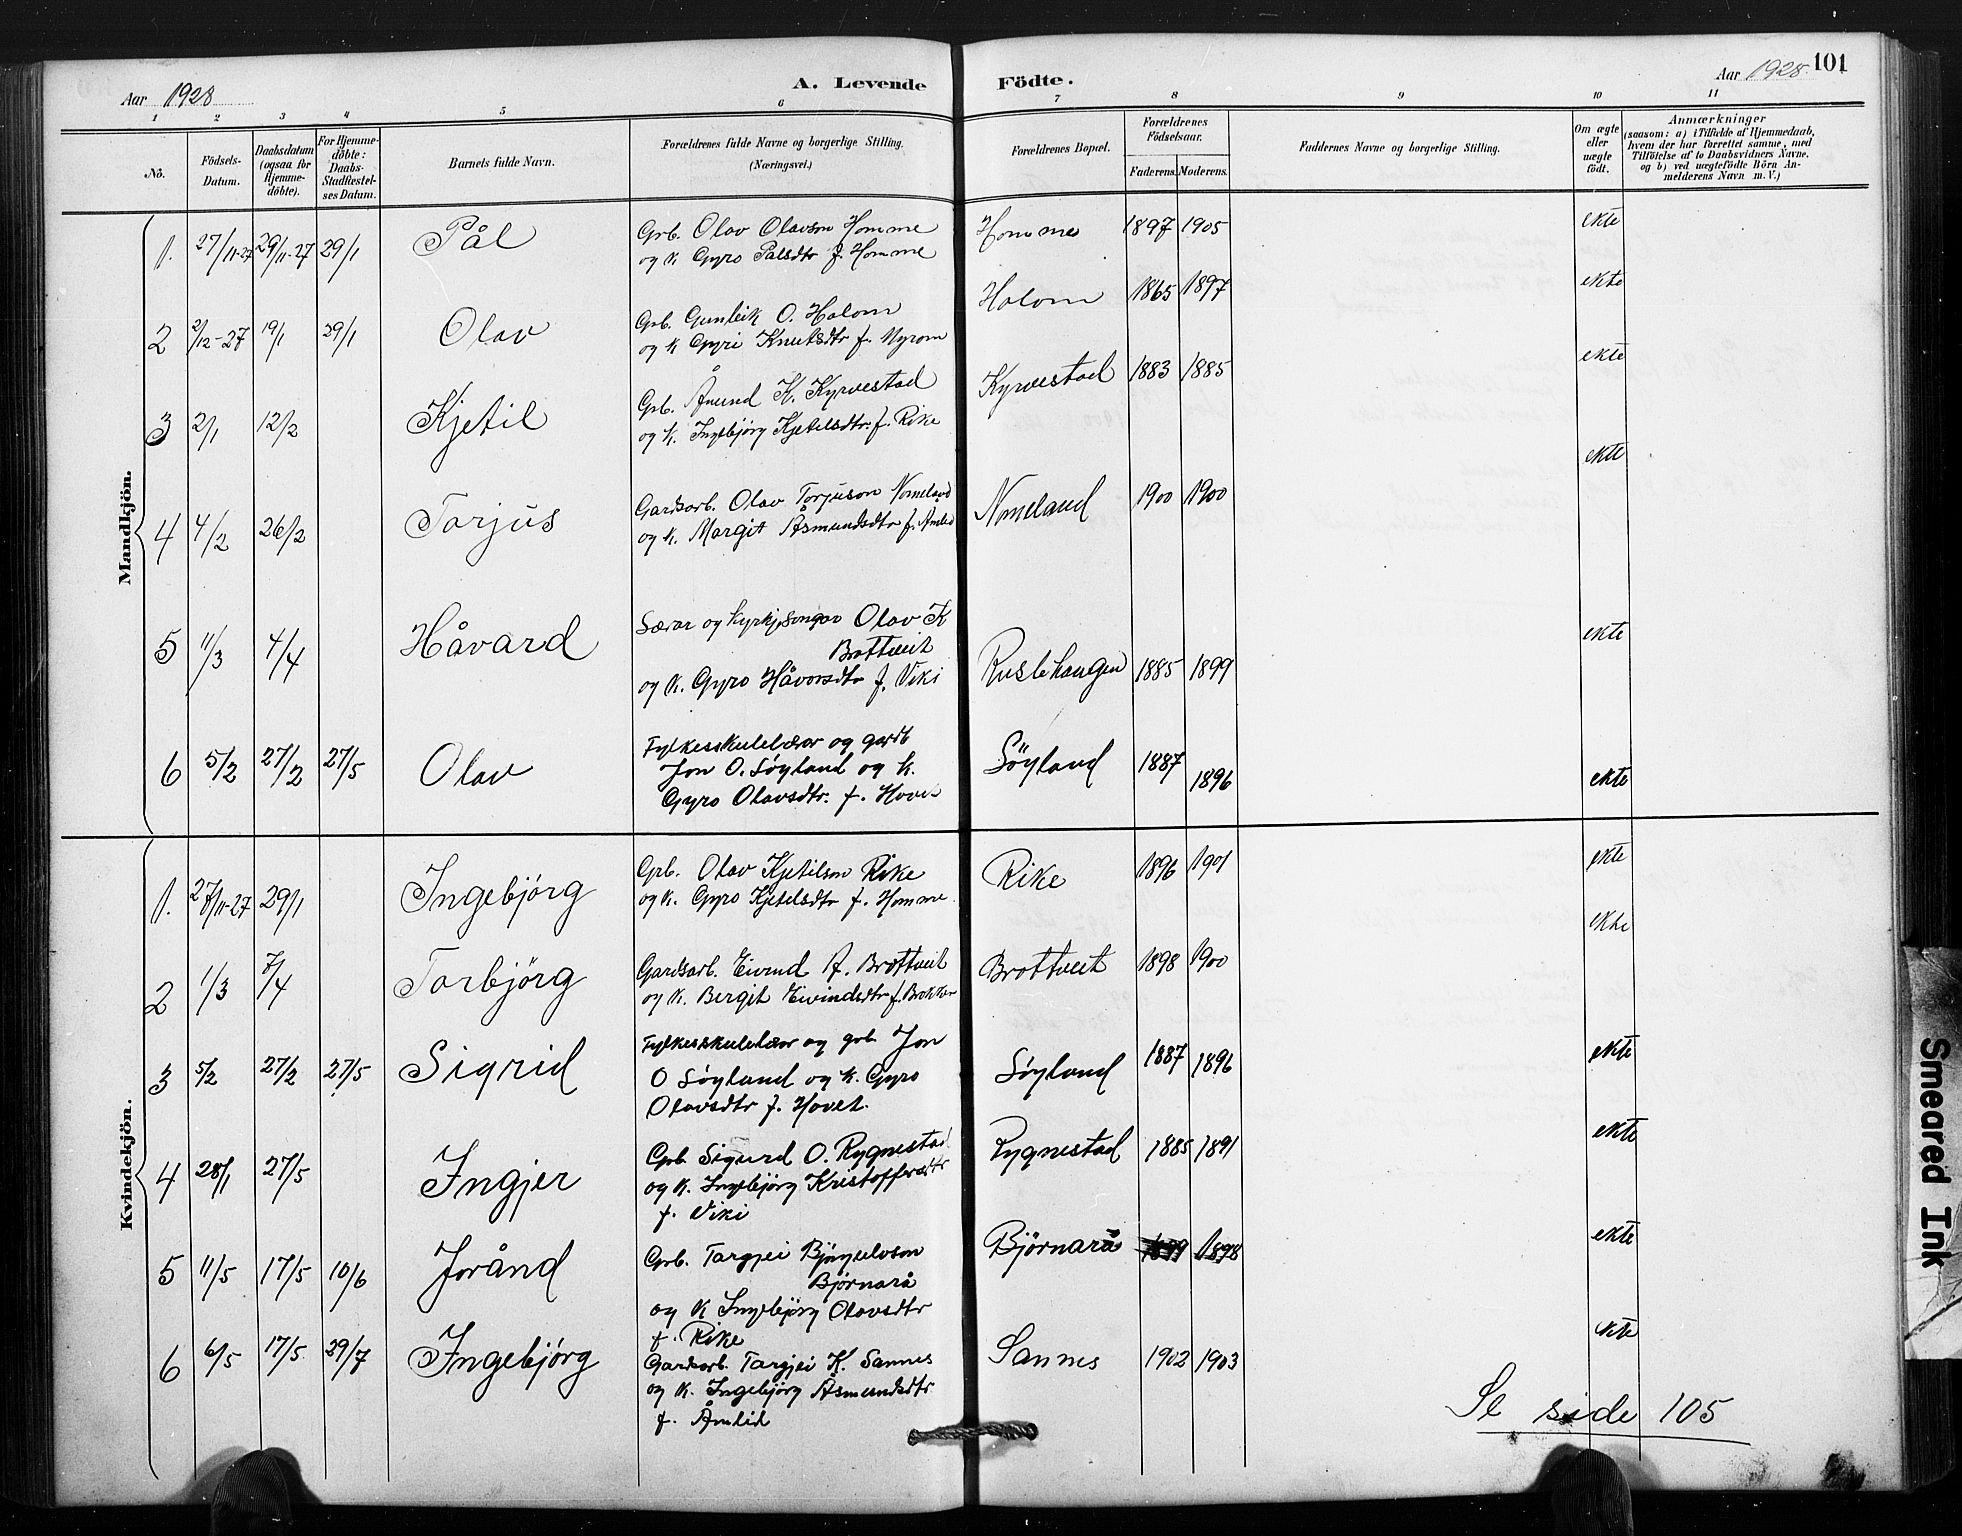 Aar 1928
A. Levende Födte.
Aar 1928. 101
1 2 3 4 5 6 7 8 9 10 11
No.
Födsels-Datum.
Daabsdatum (ogsaa for Hjemme-döbte).
For Hjemme-döbte: Daabs-Stadfæstel-ses Datum.
Barnets fulde Navn.
Forældrenes fulde Navne og borgerlige Stilling. (Næringsvei.)
Forældrenes Bopæl.
Forældrenes Födselsaar.
Faderens. Moderens.
Faddernes Navne og borgerlige Stilling.
Om ægte eller uægte födt.
Anmærkninger
(saasom: a) i Tilfælde af Hjemmedaab, hvem der har forrettet samme, med Tilföielse af to Daabsvidners Navne, og b) ved uægtefödte Börn An-melderens Navn m. V.)
Mandkjön.
1. 27/11-27 29/11-27 29/1 Pål Grb. Olav Olavson Homme Homme 1897 1905 ekte
og k. Gyro Pålsdtr f. Homme
2 2/12-27 19/1 29/1 Olav Grb. Gunleik O. Halom Halom 1865 1897 ekte
og k Gyri Knutsdtr f. Nyrom
3 2/1 12/2 Kjetil Grb. Ånund K. Kyrvestad Kyrvestad 1883 1885 ekte
og k. Ingebjörg Kjetilsdtr. f. Rike
4 4/2 26/2 Torjus Gardsarb. Olav Torjuson Nomeland Nomeland 1900 1900 ekte
og k. Margit Åsmundsdtr f. Åmlid
5 11/3 4/4 Håvard Lærar og kyrkjesongar Olav K Brottveit Rustehaugen 1885 1899 ekte
og k. Gyro Håvorsdtr f. Viki
6 5/2 27/2 27/5 Olav Fylkesskulelærar og gardb Söyland 1887 1896 ekte
Jon O. Söyland og k.
Gyro Olavsdtr. f. Hovet
Kvindekjön.
1. 27/11-27 29/1 Ingebjörg Grb. Olav Kjetilson Rike Rike 1896 1901 ekte
og k. Gyro Kjetilsdtr f. Homme
2 1/3 7/4 Torbjörg Gardsarb. Eivind A. Brottveit Brottveit 1898 1900 ekte
og k. Bergit Eivindsdtr f.
3 5/2 27/2 27/5 Sigrid Fylkesskulelærar og grb. Jon Söyland 1887 1896 ekte
O Söyland og k. Gyro
Olavsdtr f. Hovet.
4 28/1 27/5 Ingjer Grb. Sigurd O. Rygnestad Rygnestad 1885 1891 ekte
og k. Ingebjörg Kristoffersdtr
f. Viki
5 11/5 17/5 10/6 Jorånd Grb. Targjei Björgulvson Björnarå Björnarå 1899 1898 ekte
og k Ingebjörg Olavsdtr
f. Rike
6 6/5 17/5 29/7 Ingebjörg Gardsarb. Targjei K. Sannes Sannes 1902 1903 ekte
og k. Ingebjörg Åsmundsdtr
f. Åmlid
Se side 105
Smeared Ink